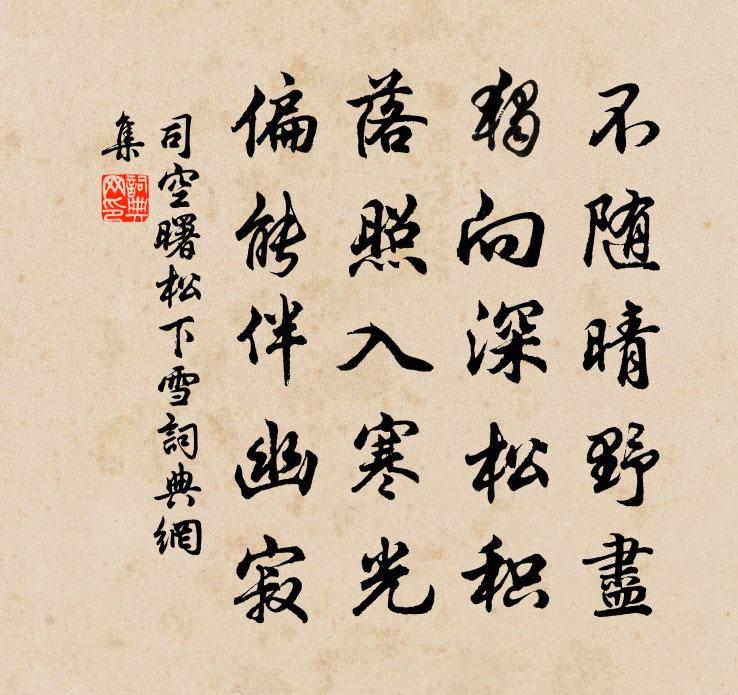 不随晴野盡
獨向深松积
落照入寒光
偏能伴幽寂
司空曙松下雪詞典網
集
詞典网印